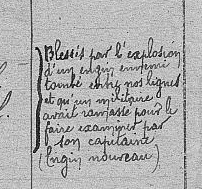 Blessés par l'explosion
d'un engin ennemi
tombé entre nos lignes
et qu'un militaire
avait ramassé pour le
faire examiner par
son capitaine
(Engin nouveau)